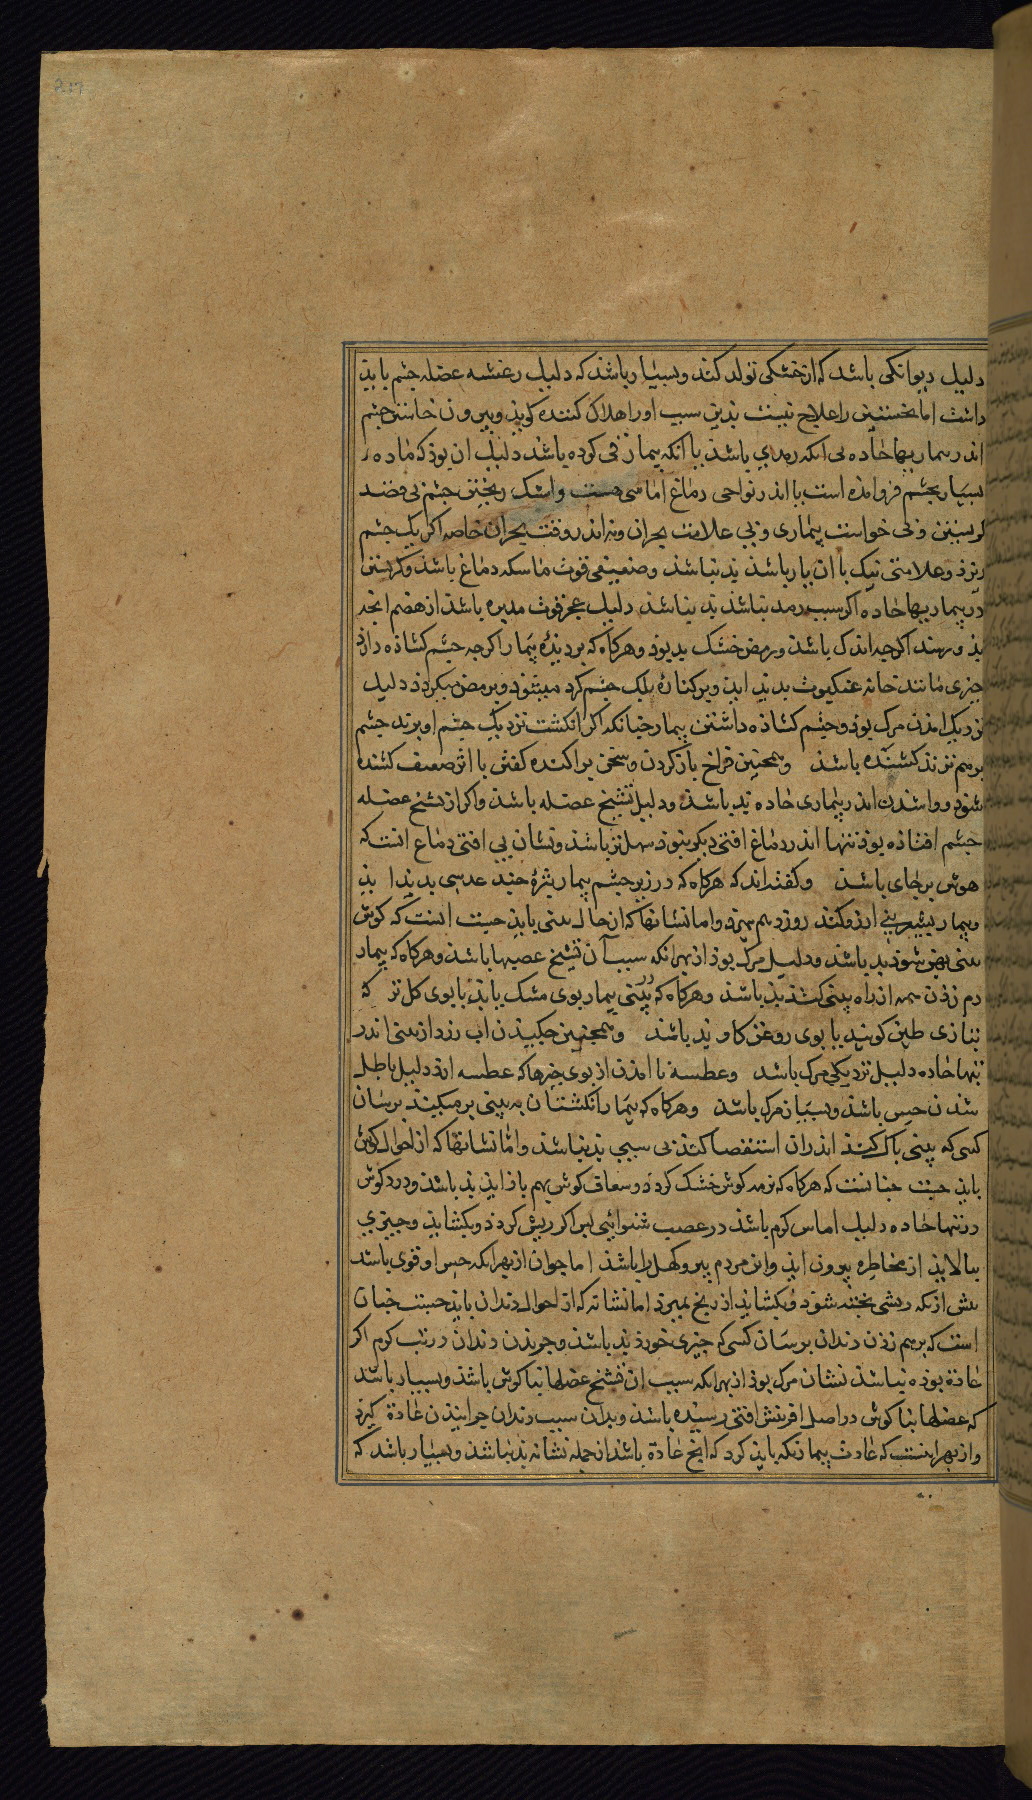 دلیل دیوانکی باشد که از خشکی تولد کند و بسیار باشد که دلیل رعشه عضله چشم باید
داشت اما نخستین را علاج نیست بدین سبب او را هلاک کننده کویذ و بیرون خاستن چشم
اندر بیماریها حاده بی انکه رمدی باشد یا انکه بیمار قی کرده باشد دلیل ان بود که ماده
بسیار بچشم فرو امذه است یا اندر نواحی دماغ اماسی هست و اشک ریختن چشم بی قصد
کریستن و بی خواست بیماری و بی علامت بحران و نه اندر وقت بحران خاصه اکر یک چشم
ریزد و علامتی نیک با ان یار باشد بد نباشد و ضعیفی قوت ماسکه دماغ باشد و کریستن
در بیماریها حاده اکر سبب رمد نباشد بد نباشد دلیل عجز قوت مدبره باشد از هضم انچه
بذو رسد اکر چه اندک باشد و رمص خشک بد بود و هرکاه که بر دیذه بیمار اکر چه چشم کشاذه دارد
چیزی مانند خانه عنکبوت بدید اید و بر کناره پلک چشم کرد میشود و رمص میکردد دلیل
نزدیک امدن مرک بود و چشم کشاده داشتن بیمار چنانکه اکر انکشت نزدیک چشم او برند چشم
برهم نزند کشنده باشد و همچنین فراخ باز کردن و سخن پراکنده کفتن با اثر ضعف کشنده
شود و واشدن اندر بیماری حاده بد باشد و دلیل تشنج عضله باشد و اکر از تشنج عضله
چشم افتاذه بود تنها اندر دماغ افتی دیکر نبود سهل تر باشد و نشان بی افتی دماغ انست که
هوش برجای باشد و کفته اند که هرکاه که در زیر چشم بیمار بثره چند عدسی بدید اید
و بیمار شیرینی ارزو کند روز دهم بمیرد و اما نشانها که از حال بینی باید جست انست که کوش
بینی پهن شود بد باشد و دلیل مرک بود از بهر انکه سبب آن تشنج عصبها باشد و هرکاه که بیمار
دم زدن همه از راه بینی کند بد باشد و هرکاه که در بینی بیمار بوی مشک یابد یا بوی کل تر که
بتازی طین کویند یا بوی روغن کاو بد باشد و همچنین چکیدن اب زرد از بینی اندر
تبها حاده دلیل نزدیکی مرک باشد و عطسه نا امدن از بوی چیزها که عطسه ارد دلیل باطل
شدن حس باشد و بسیار مرک باشد و هرکاه که بیمار انکشتان به بینی بر میکیذ برسان
کسی که بینی پاک کند اندران استقصا کند بی سببی بد نباشد و اما نشانها که از احوال کوش
باید جست چنانست که هرکاه که نرمه کوش خشک کردد و سعاف کوش بهم باز اید بد باشد و درد کوش
در تبها حاده دلیل اماس کرم باشد در عصب شنوایی بس اکر ریش کردد و بکشاید و چیزی
بپالاید از مخاطره بیرون اید و این مردم پیر و کهل را باشد اما جوان از بهر انکه حس او قوی باشد
پیش از انکه ریشی پخته شود و بکشاید از رنج بمیرد اما نشانه که از احوال دندان باید جست چنان
است که برهم زدن دندان برسان کسی که چیزی خورد بد باشد و جریدن دندان در تب کرم اکر
عادة بوده نباشد نشان مرک بود از بهر انکه سبب ان تشنج عضلها بناکوش باشد و بسیار باشد
که عضلها بناکوش در اصل افرینش افتی رسیده باشد و بدان سبب دندان جراییدن عادة کیرد
و از بهر اینست که عادت بیمار نکه باید کرد که انچ عادة باشد از جمله نشانه بد نباشد و بسیار باشد که